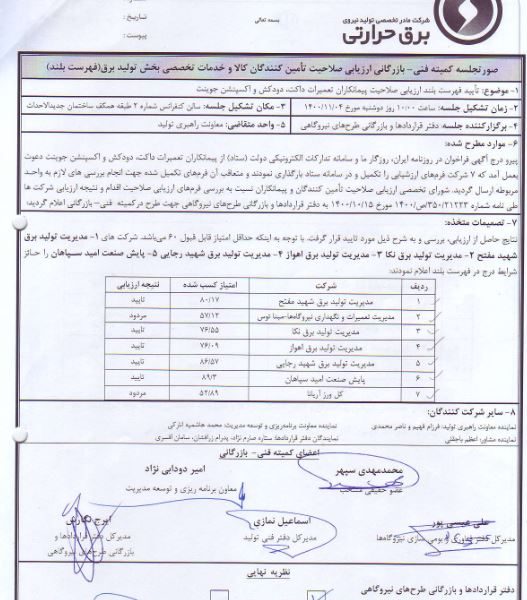 شماره :
تاریخ :
پیوست :
بسمه تعالی
شرکت مادر تخصصی تولید نیروی
برق حرارتی
صورتجلسه کمیته فنی- بازرگانی ارزیابی صلاحیت تأمین کنندگان کالا و خدمات تخصصی بخش تولید برق(فهرست بلند)
۱- موضوع: تأیید فهرست بلند ارزیابی صلاحیت پیمانکاران تعمیرات داکت، دودکش و اکسپنشن جوینت
۲- زمان تشکیل جلسه: ساعت ۱۰:۰۰ روز دوشنبه مورخ ۱۴۰۰/۱۱/۰۴
۳- مکان تشکیل جلسه: سالن کنفرانس شماره ۲ طبقه همکف ساختمان جدیدالاحداث
۴- برگزارکننده جلسه: دفتر قراردادها و بازرگانی طرح‌های نیروگاهی
۵- واحد متقاضی: معاونت راهبری تولید
۶- موارد مطرح شده:
پیرو درج آگهی فراخوان در روزنامه ایران، روزگار ما و سامانه تدارکات الکترونیکی دولت (ستاد) از پیمانکاران تعمیرات داکت، دودکش و اکسپنشن جوینت دعوت
بعمل آمد که ۷ شرکت فرم‌های ارزشیابی را تکمیل و در سامانه ستاد بارگذاری نمودند و متعاقب آن فرم‌های تکمیل شده جهت انجام بررسی های لازم به واحد
مربوطه ارسال گردید. شورای تخصصی ارزیابی صلاحیت تأمین کنندگان و پیمانکاران نسبت به بررسی فرم‌های ارزیابی صلاحیت اقدام و نتیجه ارزیابی شرکت ها
طی نامه شماره ۳۵۰/۲۱۲۳۳/ص/۱۴۰۰ مورخ ۱۴۰۰/۱۰/۱۵ به دفتر قراردادها و بازرگانی طرح‌های نیروگاهی جهت طرح درکمیته فنی- بازرگانی اعلام گردید:
۷- تصمیمات متخذه:
نتایج حاصل از ارزیابی، بررسی و به شرح ذیل مورد تایید قرار گرفت. با توجه به اینکه حداقل امتیاز قابل قبول ۶۰ می‌باشد. شرکت های ۱- مدیریت تولید برق
شهید مفتح ۲- مدیریت تولید برق نکا ۳- مدیریت تولید برق اهواز ۴- مدیریت تولید برق شهید رجایی ۵- پایش صنعت امید سپاهان را حائز
شرایط درج در فهرست بلند اعلام نمودند:
ردیف شرکت امتیاز کسب شده نتیجه ارزیابی
۱ مدیریت تولید برق شهید مفتح ۸۰/۱۷ تایید
۲ مدیریت تعمیرات و نگهداری نیروگاه‌ها-مپنا توس ۵۷/۱۲ مردود
۳ مدیریت تولید برق نکا ۷۶/۵۵ تایید
۴ مدیریت تولید برق اهواز ۷۶/۰۹ تایید
۵ مدیریت تولید برق شهید رجایی ۸۶/۵۷ تایید
۶ پایش صنعت امید سپاهان ۸۹/۳ تایید
۷ کل ورز آریانا ۵۴/۸۹ مردود
۸- سایر شرکت کنندگان:
نماینده معاونت راهبری تولید: فرزام فهیم و ناصر محمدی
نماینده معاونت برنامه‌ریزی و توسعه مدیریت: محمد هاشمیه انارکی
نماینده مشاور: اعظم باجقلی
نمایندگان دفتر قراردادها: ستاره صارم نژاد، پدرام زرافشان، سامان افسری
اعضای کمیته فنی- بازرگانی
محمدمهدی سپهر
عضو حقیقی منتخب
امیر دودابی نژاد
معاون برنامه ریزی و توسعه مدیریت
علی عیسی پور
مدیرکل دفتر فناوری و بومی سازی نیروگاه‌ها
اسماعیل نمازی
مدیرکل دفتر فنی تولید
ایرج نگارش
مدیرکل دفتر قراردادها و
بازرگانی طرح‌های نیروگاهی
نظریه نهایی
دفتر قراردادها و بازرگانی طرح‌های نیروگاهی